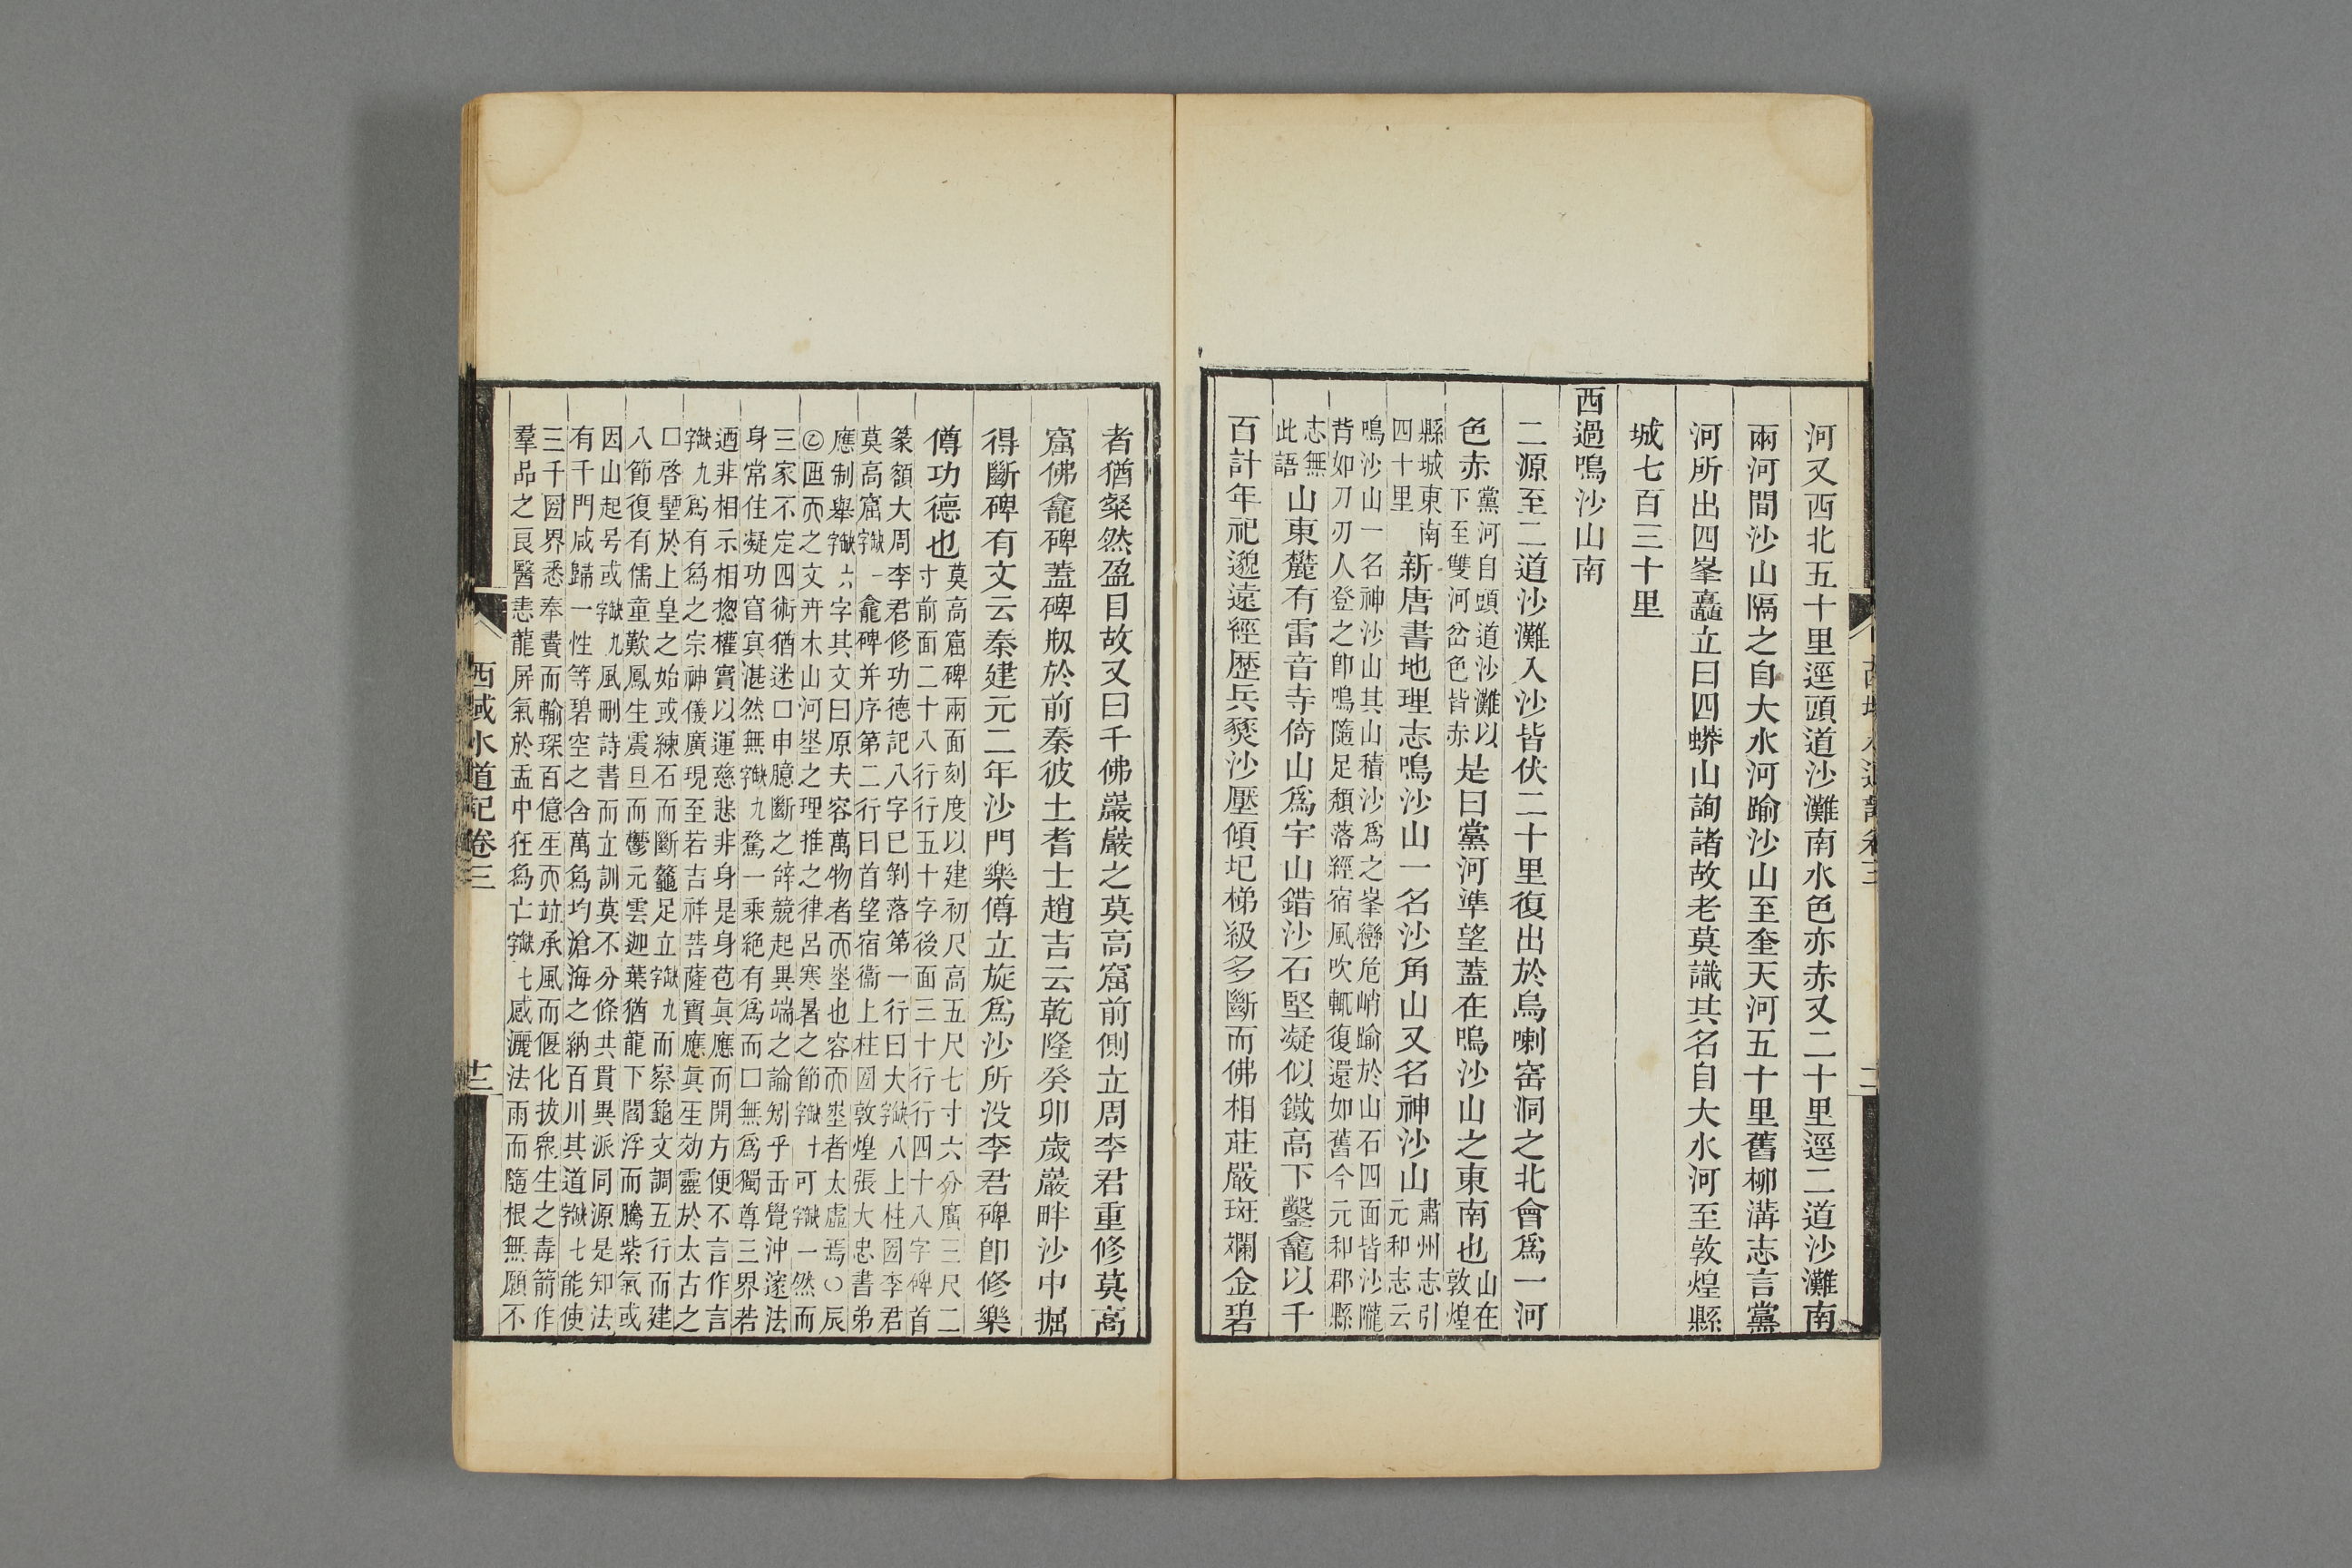 河又西北五十里逕頭道沙灘南水色亦赤又二十里逕二道沙灘南
兩河間沙山隔之自大水河踰沙山至奎天河五十里舊柳溝志言黨
河所出四峯矗立曰四蟒山詢諸故老莫識其名自大水河至敦煌縣
城七百三十里
西過鳴沙山南
二源至二道沙灘入沙皆伏二十里復出於烏喇窑洞之北會爲一河
色赤
黨河自頭道沙灘以
下至雙河岔色皆赤
是曰黨河準望蓋在鳴沙山之東南也
山在
敦煌
縣城東南
四十里
新唐書地理志鳴沙山一名沙角山又名神沙山
肅州志引
元和志云
鳴沙山一名神沙山其山積沙爲之峯巒危峭踰於山石四面皆沙隴
背如刀刃人登之卽鳴隨足頹落經宿風吹輒復還如舊今元和郡縣
志無
此語
山東麓有雷音寺倚山爲宇山錯沙石堅凝似鐵高下鑿龕以千
百計年祀邈遠徑歷兵燹沙壓傾圮梯級多斷而佛相莊嚴斑斕金碧
者猶粲然盈目故又曰千佛巖巖之莫高窟前側立周李君重修莫高
窟佛龕碑蓋碑刱於前秦彼土耆士趙吉云乾隆癸卯歲巖畔沙中掘
得斷碑有文云秦建元二年沙門樂僔立旋爲沙所没李君碑卽修樂
僔功德也
莫高窟碑兩面刻度以建初尺高五尺七寸六分廣三尺二
寸前面二十八行行五十字後面三十行行四十八字碑首
篆額大周李君修功德記八字已剝落第一行曰大缺八字上柱圀李君
莫高窟缺一字龕碑并序第二行曰首望宿衞上柱圀敦煌張大忠書弟
應制舉缺六字字其文曰原夫容萬物者而埊也容而埊者太虛焉〇辰
匨而之文卉木山河埊之理推之律呂寒暑之節缺十字可缺一字然而
三家不定四術猶迷口申臆斷之辝競起異端之論矧乎正覺沖邃法
身常住凝功窅寘湛然無缺九字騖一乘絕有爲而口無爲獨尊三界若
迺非相示相揔權實以運慈悲非身是身苞眞應而開方便不言作言
缺九字爲有爲之宗神儀廣現至若吉祥菩薩寶應眞𤯔効靈於太古之
口啓聖於上皇之始或練石而斷鼇足立缺九字而察龜文調五行而建
八節復有儒童歎鳳生震旦而鬱元雲迦葉猶龍下閻浮而騰紫氣或
因山起号或缺九字風刪詩書而立訓莫不分條共貫異派同源是知法
有千門咸歸一性等碧空之含萬爲均滄海之納百川其道缺七字能使
三千圀界悉奉賮而輸琛百億𤯔而竝承風而偃化拔衆生之毒箭作
羣品之良醫恚龍屏氣於盂中狂爲亡缺七字感灑法雨而隨根無願不
西域水道記卷三